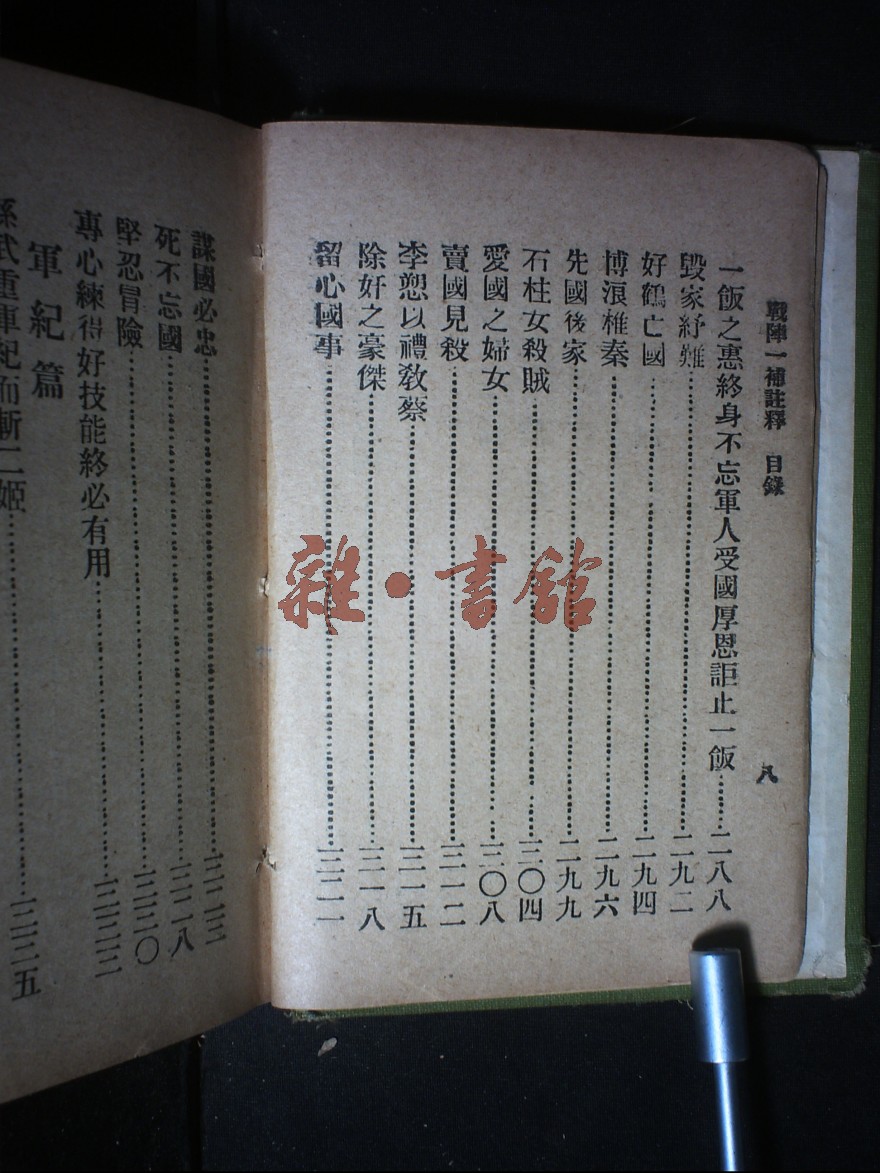 戰陣一補註釋 目錄 八
一飯之惠終身不忘軍人受國厚恩詎止一飯……二八八
毀家紓難……二九二
好鶴亡國……二九四
博浪椎秦……二九六
先國後家……二九九
石柱女殺賊……三〇四
愛國之婦女……三〇八
賣國見殺……三一二
李愬以禮敎蔡……三一五
除奸之豪傑……三一八
留心國事……三二一
謀國必忠……三二三
死不忘國……三二八
堅忍冒險……三三〇
專心練得好技能終必有用……三三三
軍紀篇
孫武重軍紀而斬二姬……三三五
雜·書館